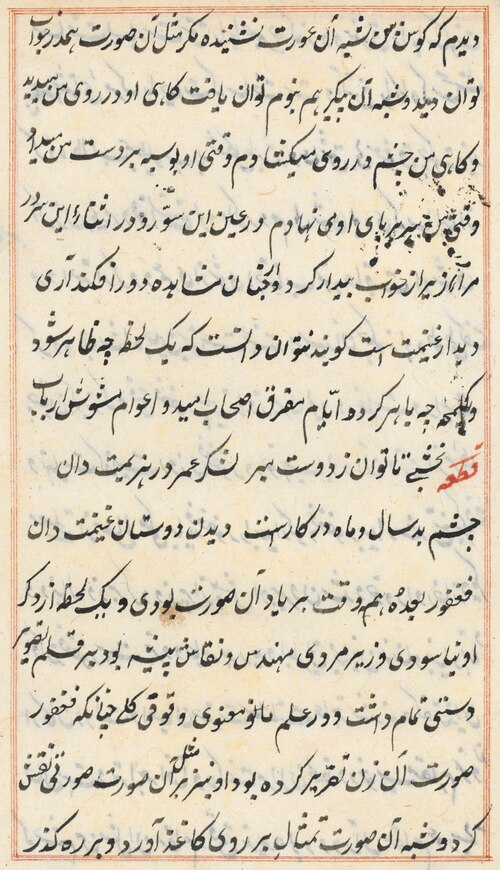 دیدم که کوس من شبه آن عورت نشنیده مکر مثل آن صورت هم در خواب
توان دید و شبه آن پیکر هم بنوم توان یافت کاهی او در روی من میدید
و کاهی من چشم در روی میکشادم وقتی او بوسه بر دست من میداد
وقتی من سر بر پای او می نهادم در عین این سوّر و در اثناء این سرور
مرا وزیر از خواب بیدار کرد و از چنان مشاهده دور افکند آری
دیدار غنیمت است کویند نتوان دانست که یک لحظ چه ظاهر شود
و چه باهر کردد ایام مفرق اصحاب امید و اعوام مشوش ارباب
قطعه نخشبی تا توان ز دوست مبر لشکر عمر در هزیمت دان
چشم بد سال و ماه در کارست دیدن دوستان غنیمت دان
فغفور بعده هم وقت بر یاد آن صورت بودی و یک لحظ از ذکر
او نیاسودی وزیر مردی مهندس و نقاش پیشه بود بر قلم تصویر
دستی تمام داشت و در علم مانو معنوی وقوفی کلی چنانکه فغفور
صورت آن زن تقریر کرده بود او نیز بر مثل آن صورت صورتی نقش
کرد و شبه آن صورت تمثال بر روی کاغذ آورد و بر ره کذر